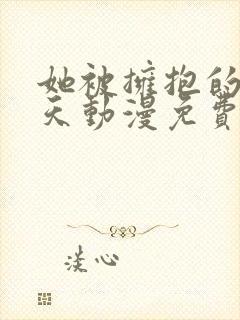 她被擁抱的
天動漫免費
淡心